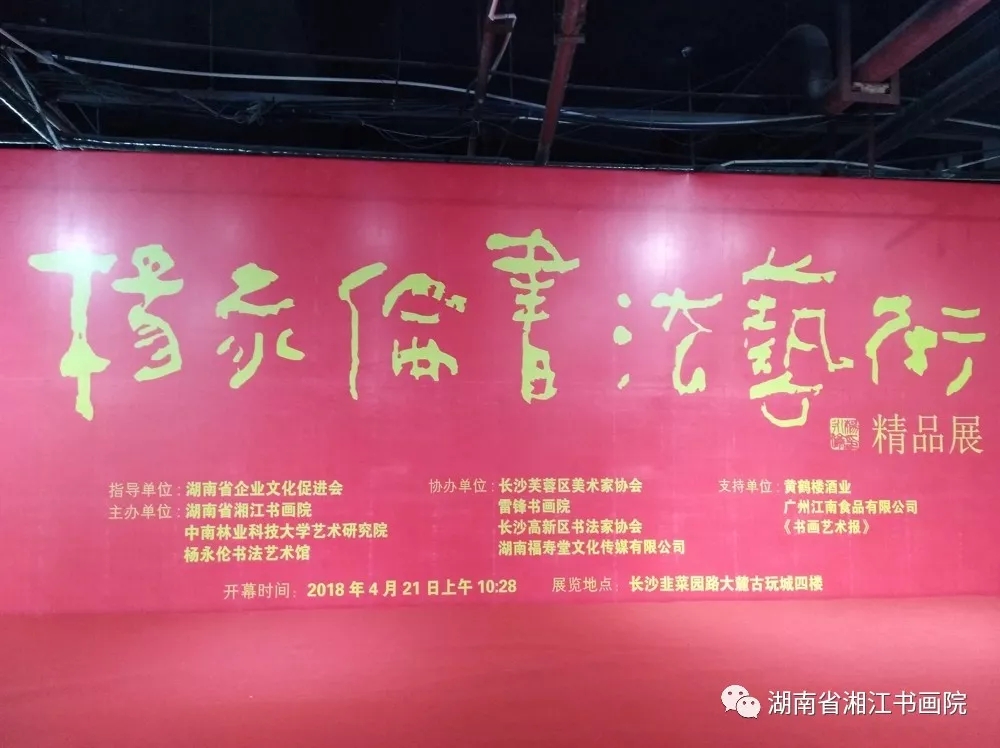 楊永倫書法藝術
精品展
指导单位：湖南省企业文化促进会
主办单位：湖南省湘江书画院
中南林业科技大学艺术研究院
杨永伦书法艺术馆
协办单位：长沙芙蓉区美术家协会
雷锋书画院
长沙高新区书法家协会
湖南福寿堂文化传媒有限公司
支持单位：黄鹤楼酒业
广州江南食品有限公司
《书画艺术报》
开幕时间：2018年4月21日上午10:28 展览地点：长沙韭菜园路大麓古玩城四楼
湖南省湘江书画院